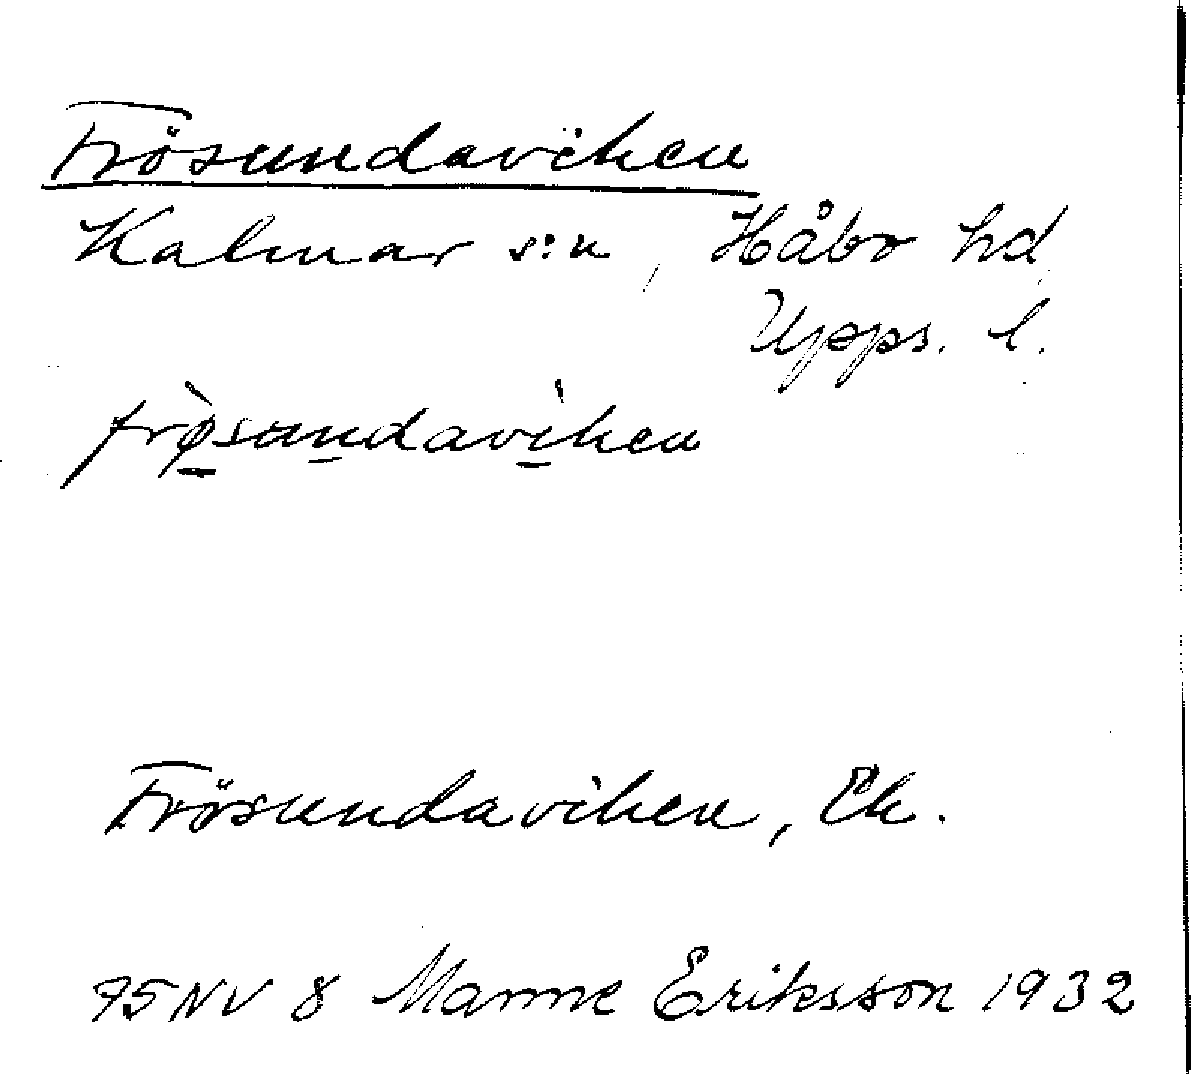 Frösundaviken
Kalmar s:n, Håbo hd
Upps. l.
frø̀sundavìken
Frösundaviken, Ek.
75 NV 8 Manne Eriksson 1932